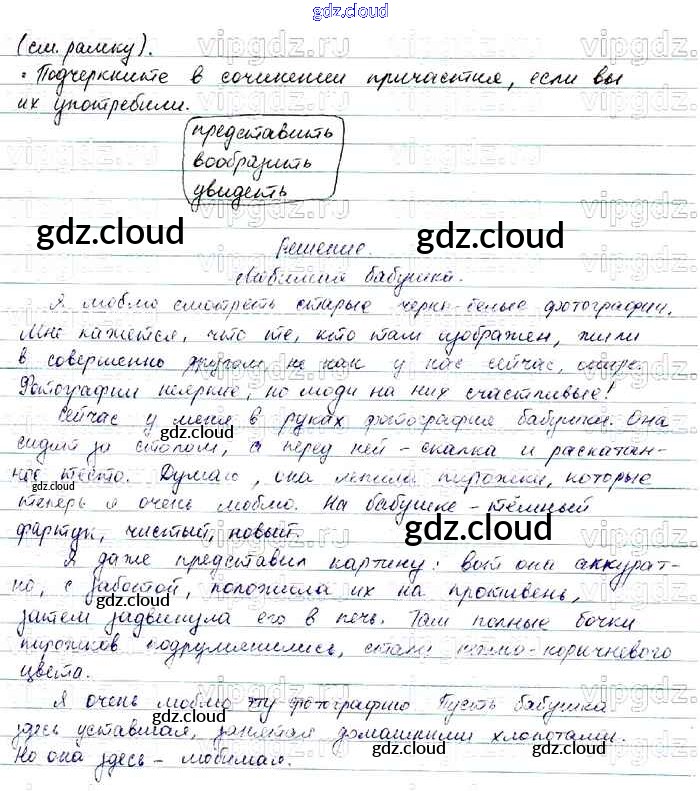 gdz.cloud
(см. рамку).
• Подчеркните в сочинении причастия, если вы
их употребили.
представить
вообразить
увидеть
gdz.cloud
gdz.cloud
Решение.
Любимая бабушка.
Я люблю смотреть старые черно-белые фотографии.
Мне кажется, что те, кто там изображен, жили
в совершенно другом, не как у нас сейчас, мире.
Фотографии неяркие, но люди на них счастливые!
Сейчас у меня в руках фотография бабушки. Она
сидит за столом, а перед ней – скалка и раскатан-
gdz.cloud
ное тесто. Думаю, она лепила пирожки, которые
gdz.cloud
теперь я очень люблю. На бабушке – тёмный
фартук, чистый, новый.
gdz.cloud
Я даже представил картину: вот она аккурат-
но, с заботой, положила их на противень,
gdz.cloud
затем задвинула его в печь. Там полные бочки
пирожков подрумянились, стали
gdz.cloud
темно-коричневого
цвета.
Я очень люблю эту фотографию. Пусть бабушка
gdz.cloud
здесь уставшая, занятая домашними хлопотами.
gdz.cloud
gdz.cloud
Но она здесь – любимая.